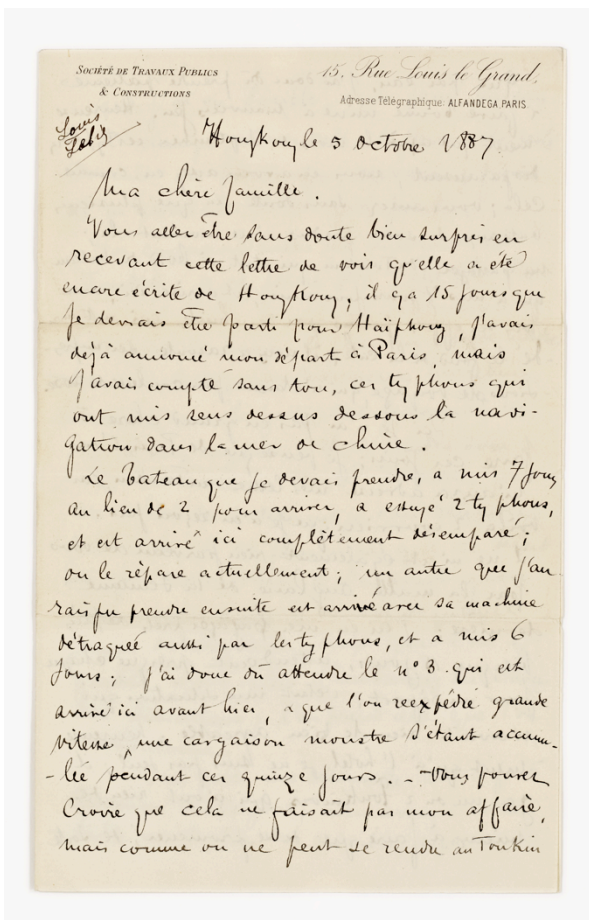 SOCIÉTÉ DE TRAVAUX PUBLICS
& CONSTRUCTIONS
15, Rue Louis le Grand,
Adresse Télégraphique: ALFANDEGA PARIS
Louis
Hongkong le 5 octobre 1887
Ma chère famille.
Vous allez être sans doute bien surpris en
recevant cette lettre de voir qu'elle a été
encore écrite de Hongkong, il y a 15 jours que
je devrais être parti pour Haïphong, j'avais
déjà annoncé mon départ à Paris, mais
j'avais compté sans tous ces typhons qui
ont mis sens dessus dessous la navi-
gation dans la mer de chine.
Le bateau que je devais prendre, a mis 7 jours
au lieu de 2 pour arriver, a essuyé 2 typhons,
et est arrivé ici complètement désemparé;
on le répare actuellement; un autre que j'au
rais pu prendre ensuite est arrivé avec sa machine
détraquée aussi par les typhons, et a mis 6
jours; j'ai donc dû attendre le n° 3 qui est
arrivé ici avant hier, et que l'on reexpédie grande
vitesse, une cargaison monstre s'étant accumu-
-lée pendant ces quinze jours. - Vous pouvez
croire que cela ne faisait pas mon affaire,
mais comme on ne peut se rendre au Tonkin